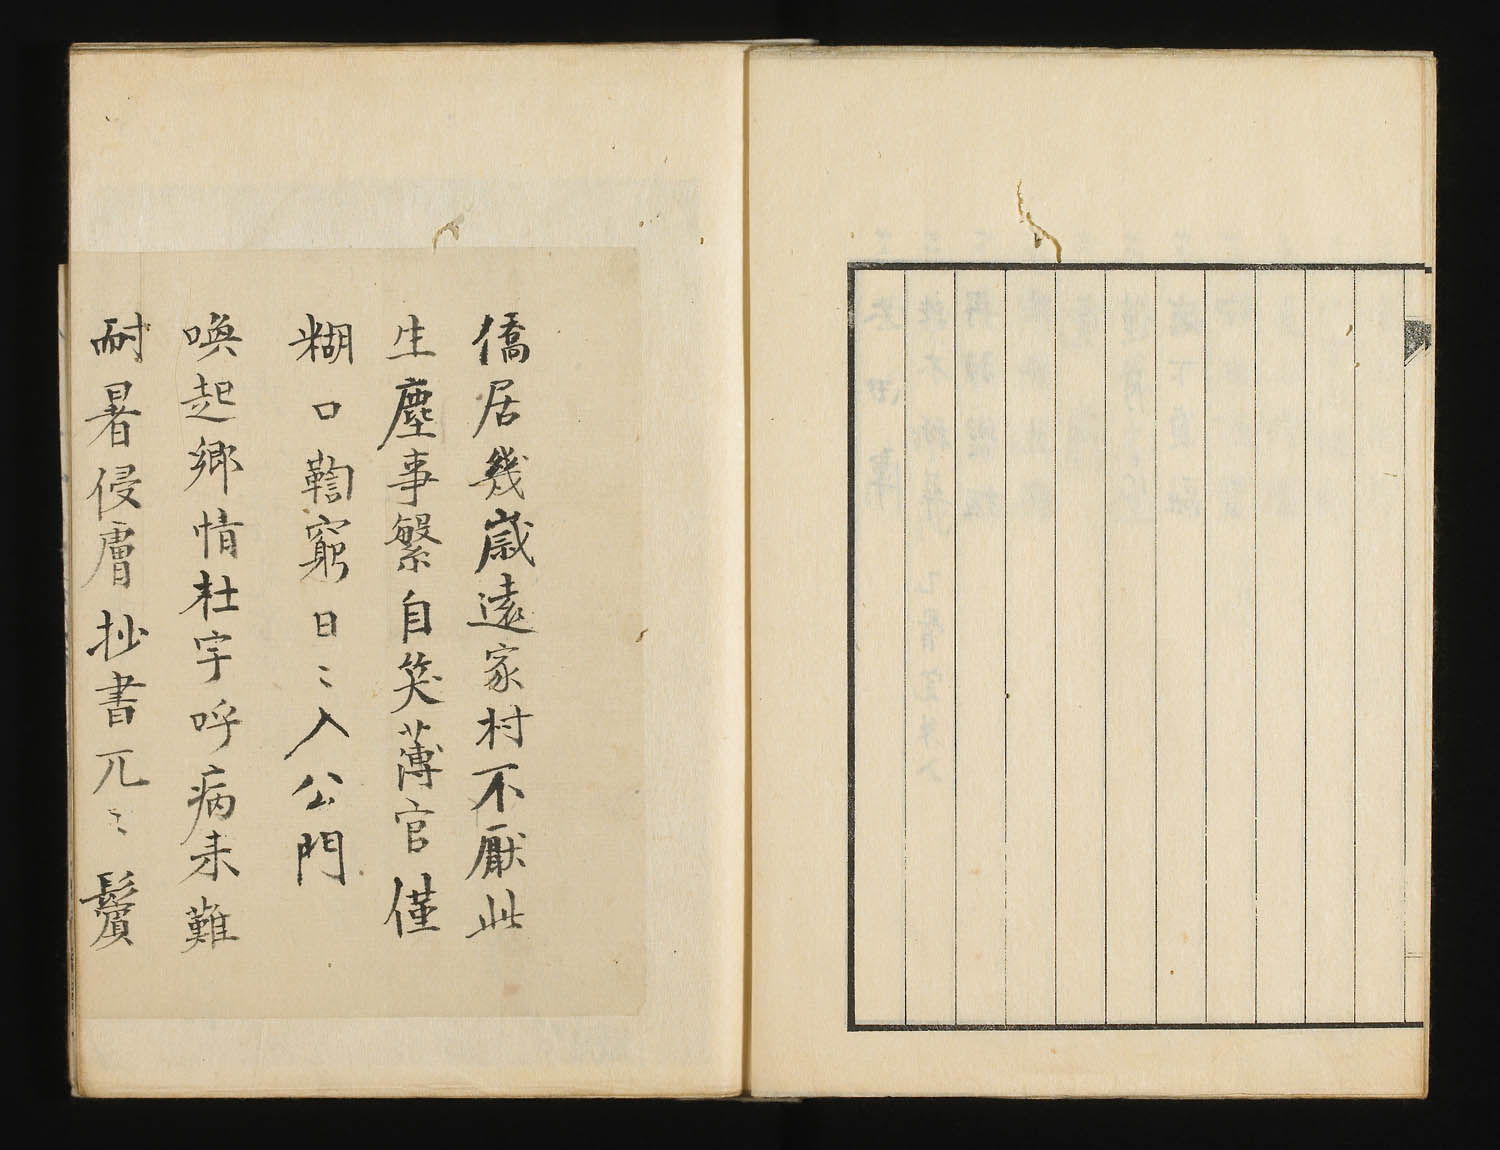 僑居幾歲遠家村不厭此
生塵事繁自笑薄官僅
糊口鞫窮日〻入公門
喚起鄉情杜宇呼病來難
耐暑侵膚抄書兀〻鬢